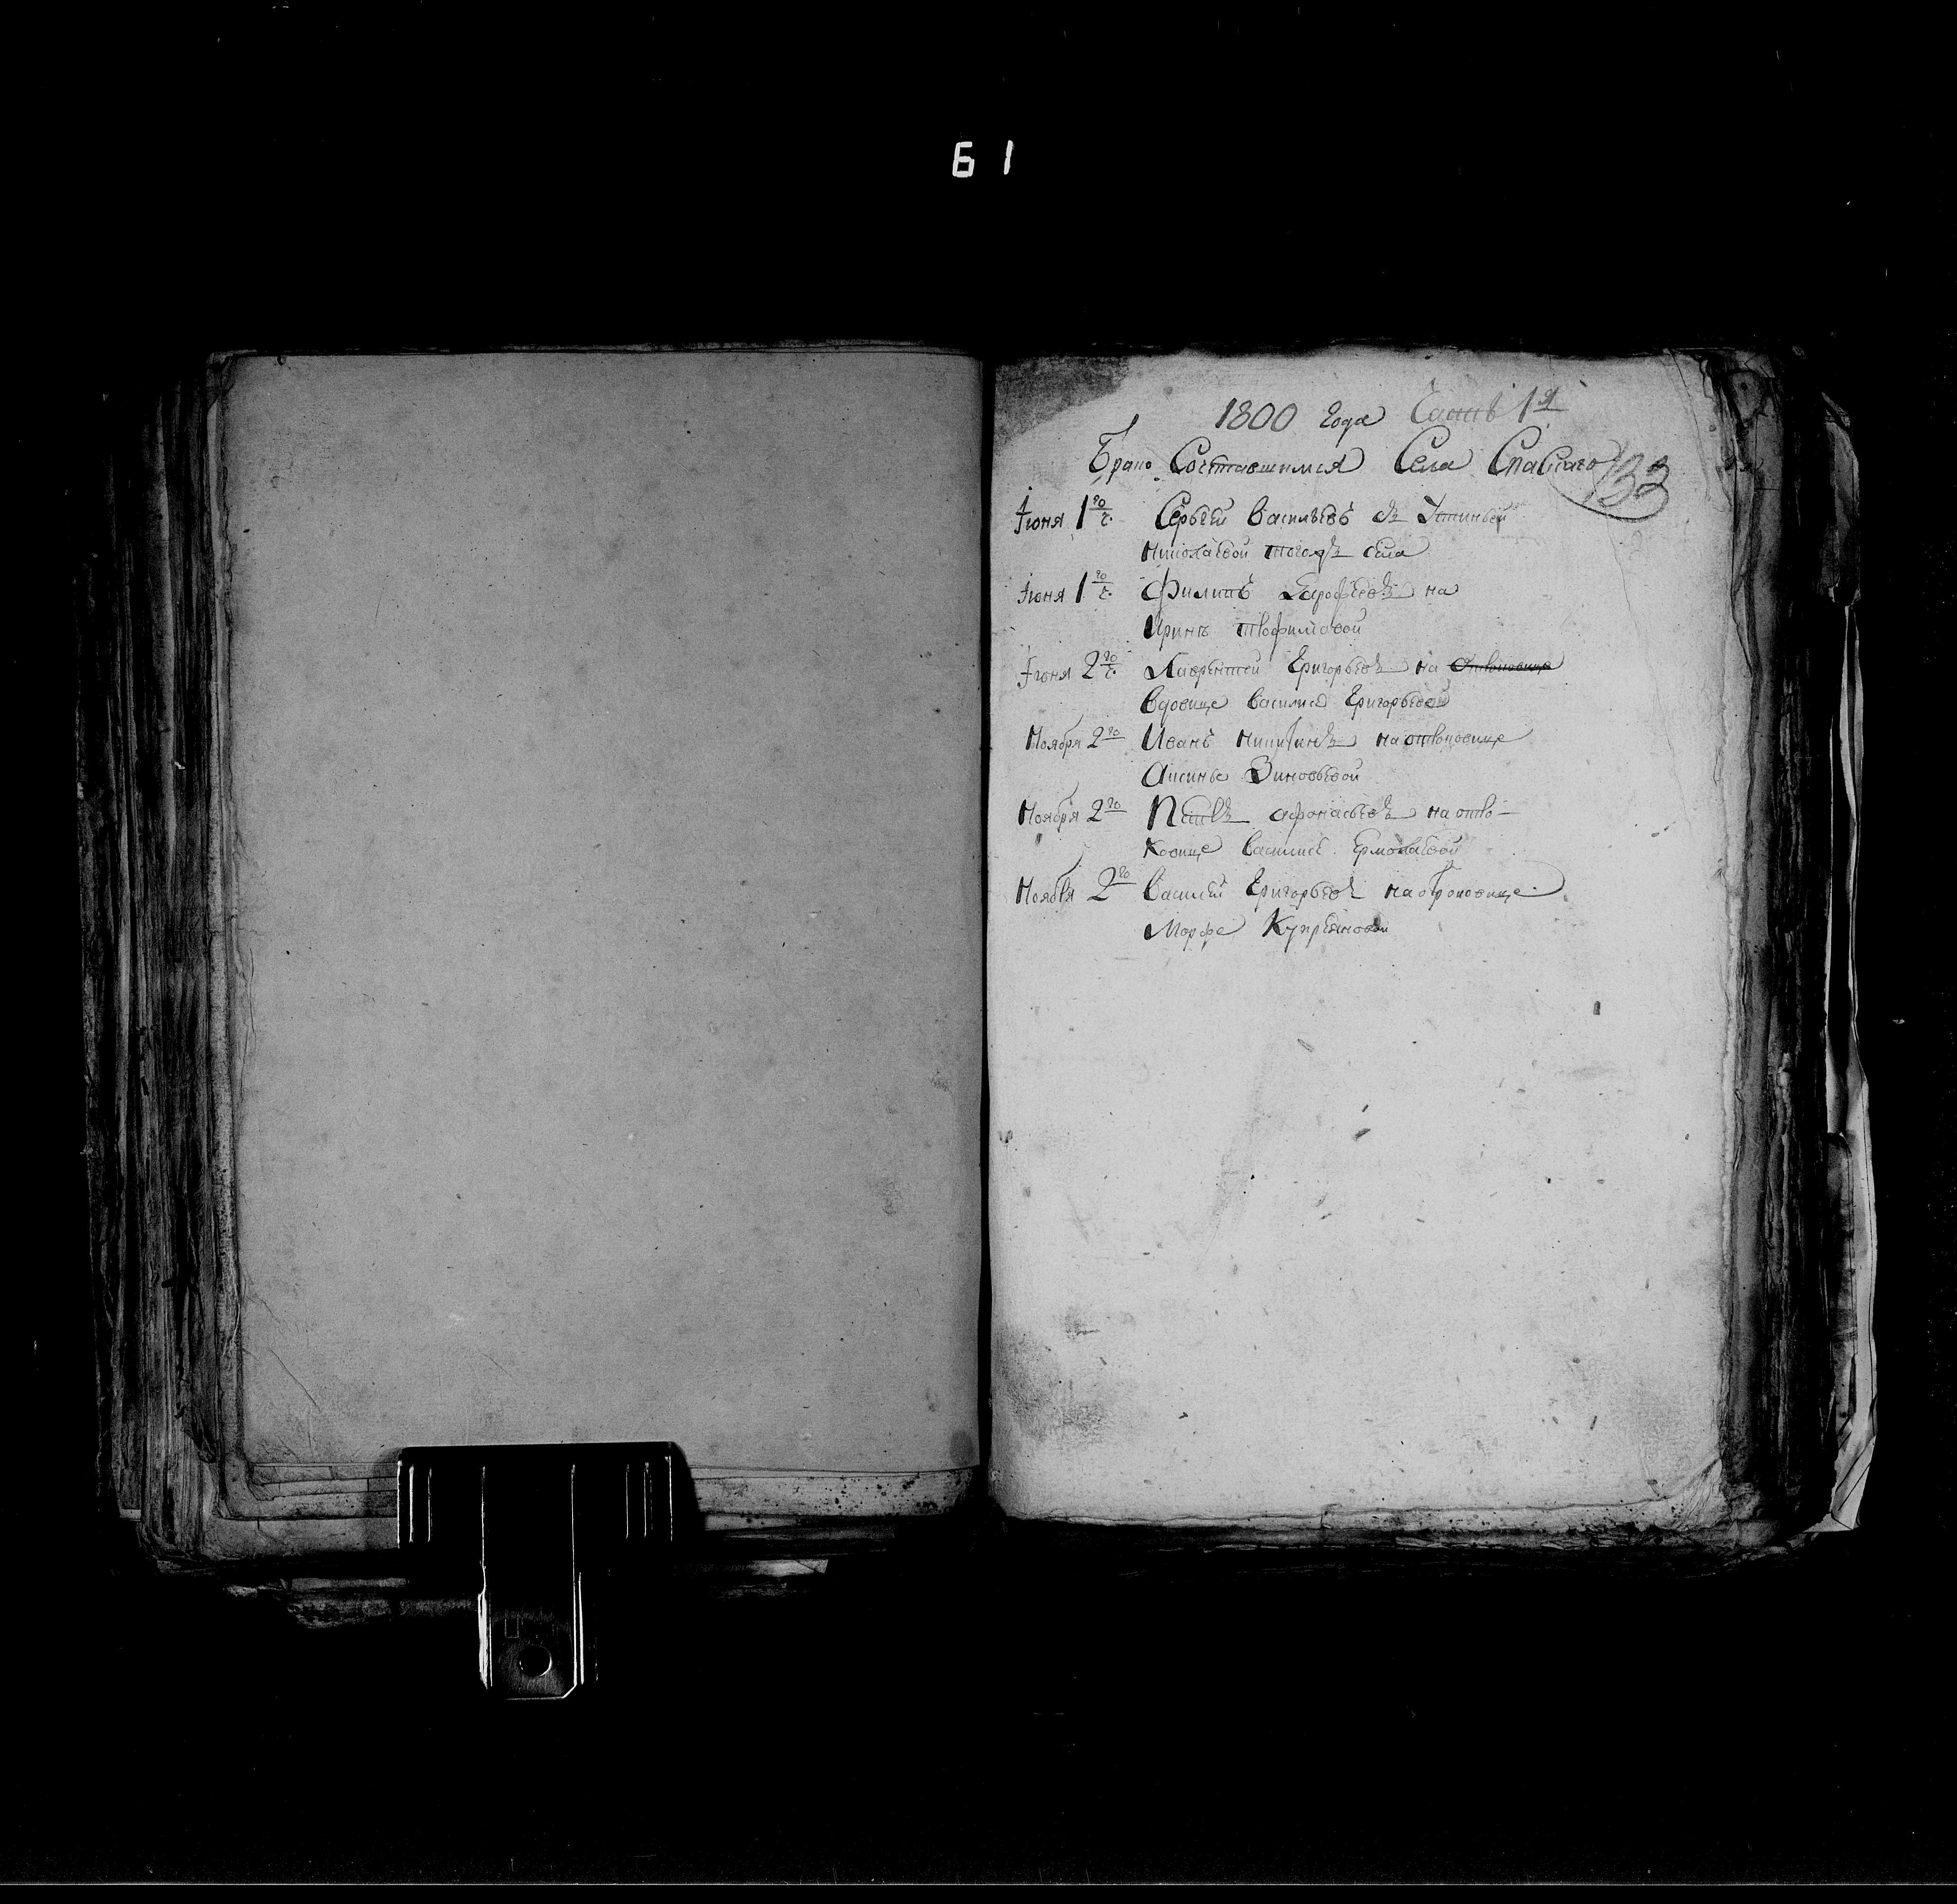 61
1800 года Часть 1я
Брако Состоавшимся Села Спаскаго
133
Июня 1го ч. Сергей Васильевъ съ Устиньей
Николаевой тогожъ села
Июня 1го ч. Филипъ Ерофеевъ на
Иринѣ Трофимовой
Июня 2го ч. Лаврентей Григорьевъ на отроковице
вдовице Василисе Григорьевой
Ноября 2го Иванъ Никитинъ на отроковице
Аксинье Зиновьевой
Ноября 2го Петръ Афонасьевъ на отро-
ковице Василисе Ермолаевой
Ноября 2го Василей Григорьевъ на отроковице
Марфе Куприяновой